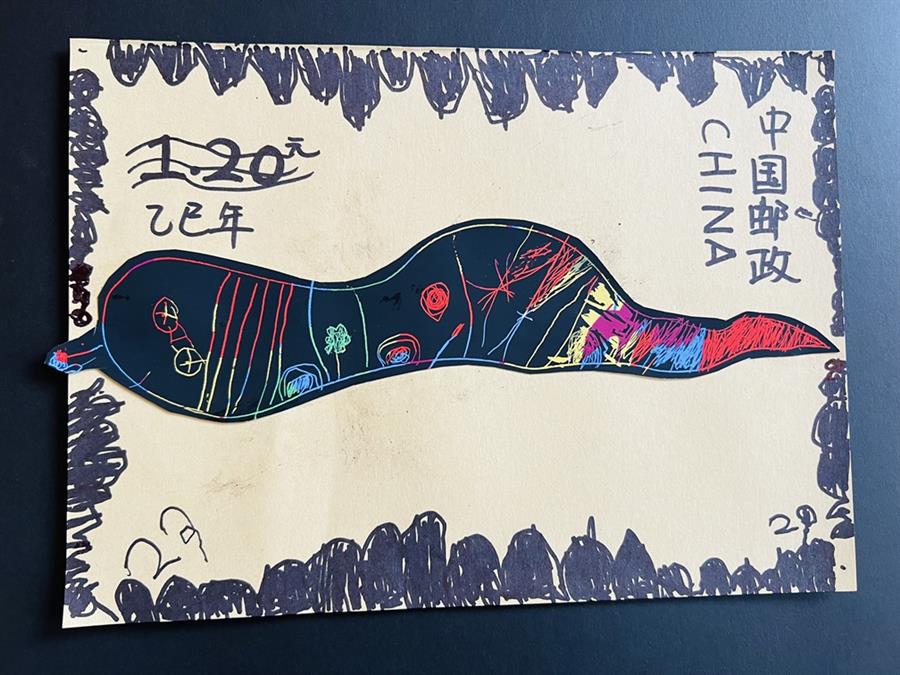 1.20元
乙巳年
中国邮政
CHINA
29
29